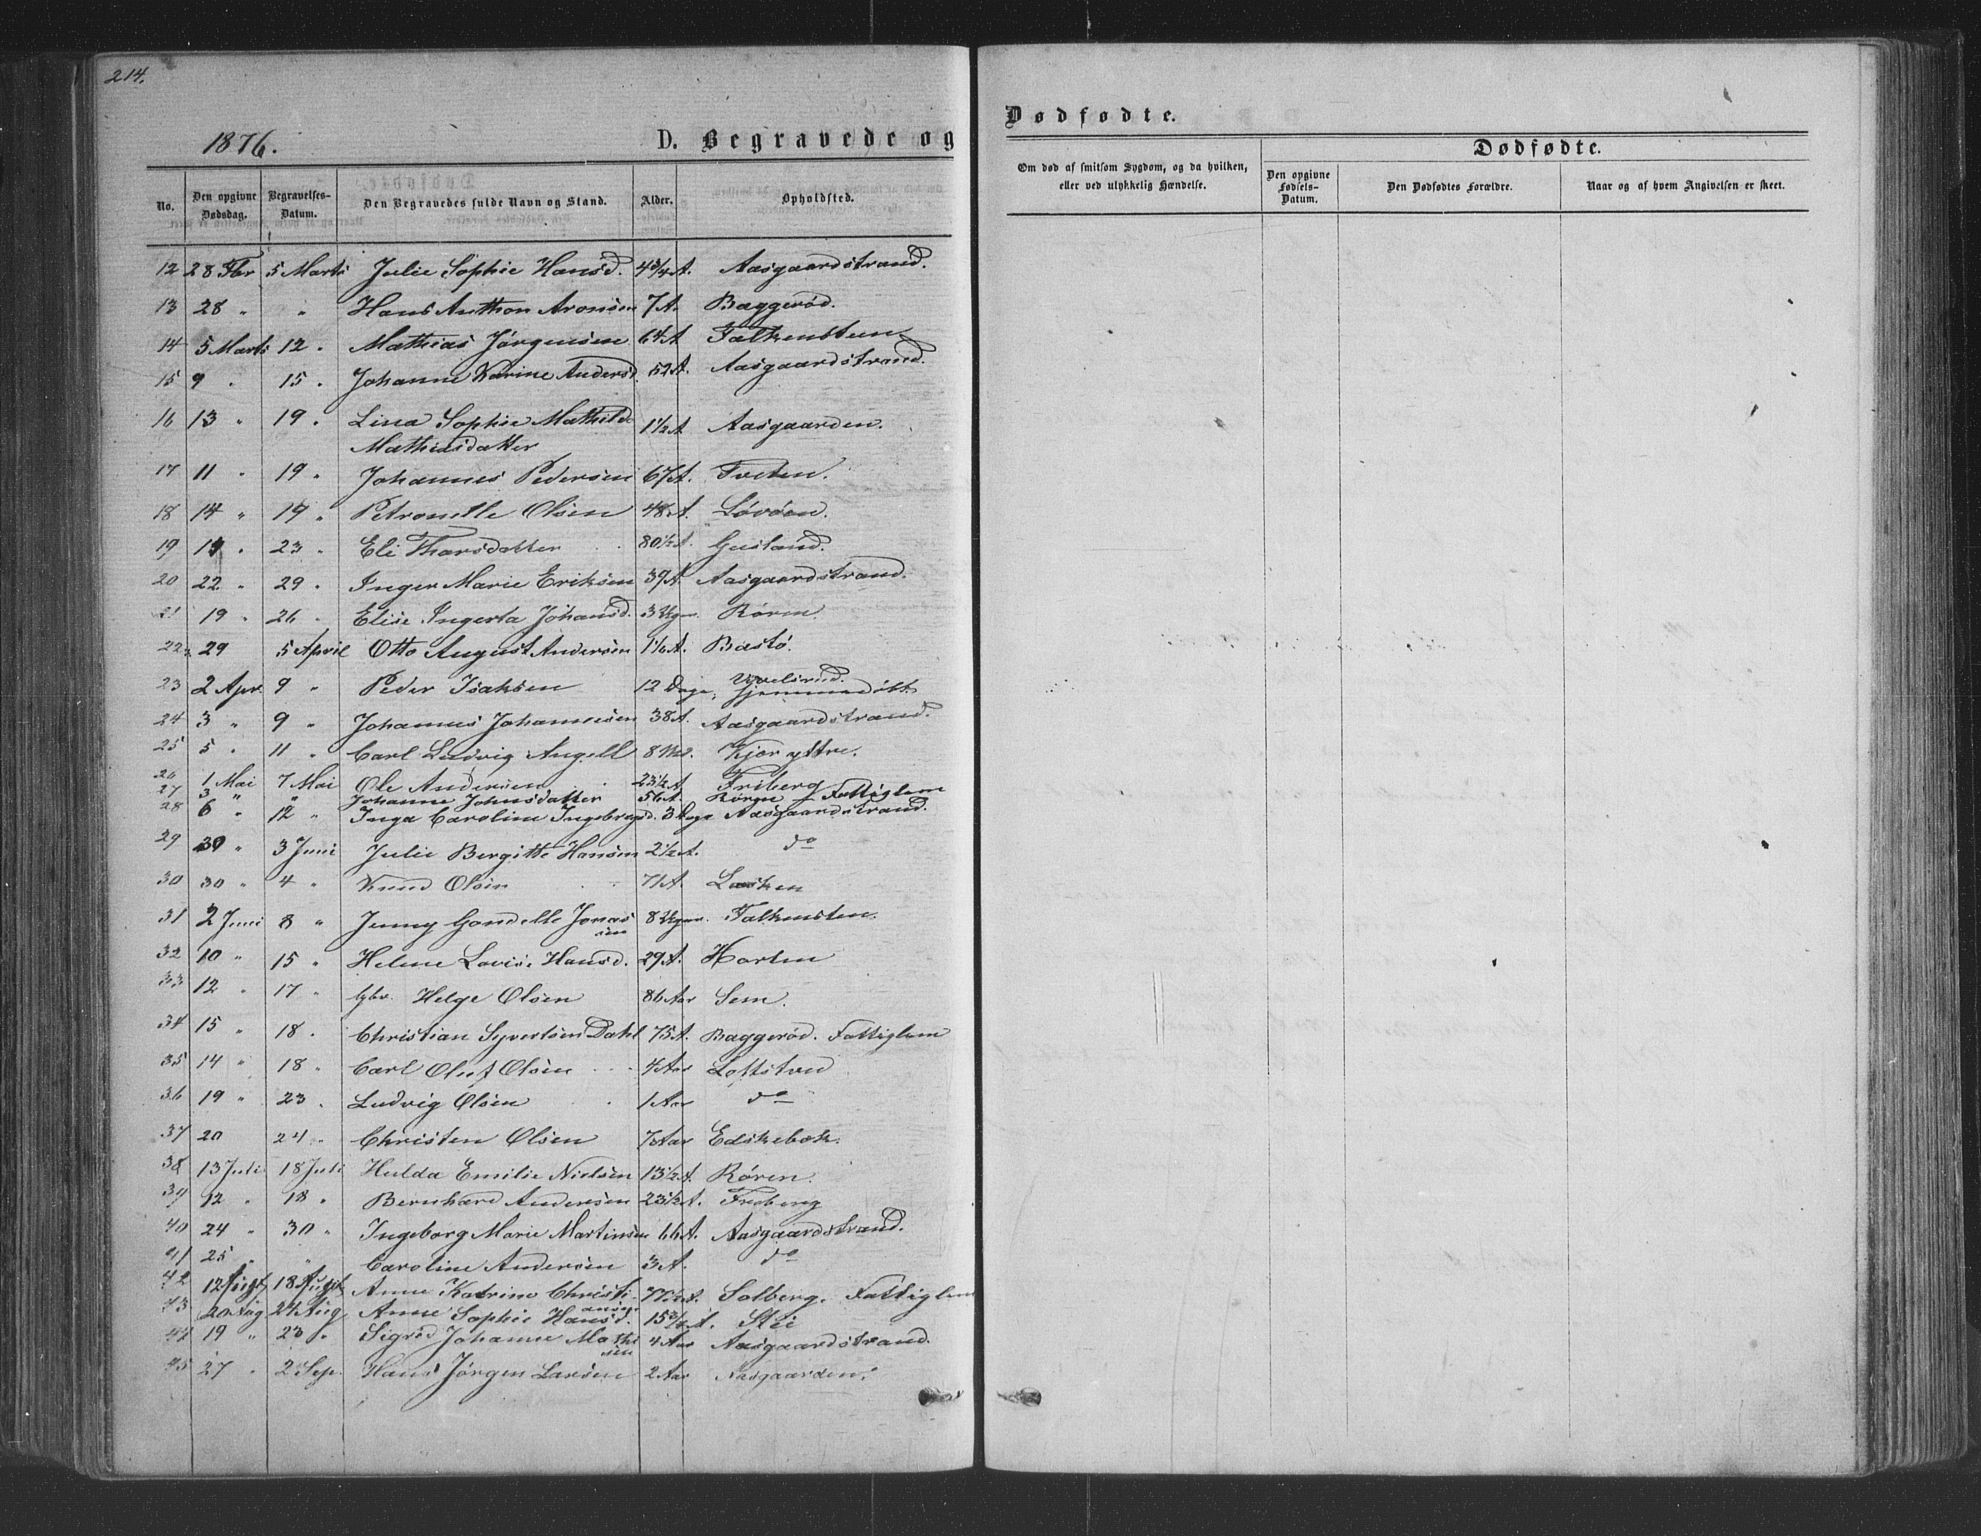 214.
1876.
D. Begravede og
No.
Den opgivne Dødsdag.
Begravelses-Datum.
Den Begravedes fulde Navn og Stand.
Alder.
Opholdsted.
12 28 Fbr 5 Marts Julie Sophie Hansd. 4 3/4 A. Aasgaardstrand.
13 28 " " Hans Anthon Aronsen 7 A. Baggerød.
14 5 Marts 12 " Mathias Jørgensen 64 A Falkensteen
15 9 " 15 " Johanne Karine Andersd. 52 A. Aasgaardstrand.
16 13 " 19 " Lina Sophie Mathilde 1 1/2 A Aasgaarden.
Mathiasdatter
17 11 " 19 " Johannes Pedersen 67 A. Foden.
18 14 " 19 " Petronelle Olsen 48 A. Løvøen.
19 " 23 " Eli Thorsdatter 80 1/2 A. Gusland.
20 22 " 29 " Inger Marie Eriksen 39 A. Aasgaardstrand.
21 19 " 26 " Elise Ingerta Johansd. 3 Ugr. Røren.
22 29 5 April Otto August Andersen 1 1/6 A. Bastø.
23 2 Apr. 9 " Peder Isaksen 12 Dage, Hjemmedøbt
24 3 " 9 " Johannes Johannesen 38 A. Aasgaardstrand.
25 5 " 11 " Carl Ludvig Angell 8 Md. Kjær yttre.
26 1 Mai 7 Mai Ole Andersen 23 1/2 A Friberg
27 3 " " Johanne Johnsdatter 56 A. Røren - Fattiglem
28 6 " 12 " Inga Caroline Ingebregsd. 3 Dage Aasgaardstrand.
29 30 " 3 Juni Julie Bergitte Hansen 2 1/2 A. do
30 30 " 4 " Knud Olsen 71 A. Løsken
31 2 Juni 8 " Jenny Gondelle Jonas 8 Ugr. Falkensten.
sen
32 10 " 15 " Helene Lovise Hansd. 29 A. Horten
33 12 " 17 " Gbr. Helge Olsen 86 Aar Sem.
34 15 " 18 " Christian Syvertsen Dahl 75 A. Baggerød. Fattiglem
35 14 " 18 " Carl Oluf Olsen 4 Aar Loftstvd
36 19 " 23 " Ludvig Olsen 1 Aar do
37 20 24 " Christen Olsen 7 Aar Edskebæk.
38 13 Juli 18 Juli Hulda Emilie Nielsen 13 1/2 A. Røren.
39 12 " 18 " Bernhard Andersen 23 1/2 A. Freberg
40 24 " 30 " Ingeborg Marie Martinsen 66 A. Aasgaardstrand.
41 25 " " Caroline Andersen 3 A. do
42 12 Augt 18 Augt Anne Katrine Christi- 77 1/2 A. Solberg. Fattiglem
ansen
43 20 Aug 24 Aug Anne Sophie Hansd. 15 3/4 A. Stei
44 19 " 23 " Sigrid Johanne Mathi 4 Aar Aasgaardstrand.
sen
45 27 " 2 Sep. Hans Jørgen Larsen 2 Aar Aasgaarden.
Dødfødte.
Om død af smitsom Sygdom, og da hvilken, eller ved ulykkelig Hændelse.
Dødfødte.
Den opgivne Fødsels-Datum.
Den Dødfødtes Forældre.
Naar og af hvem Angivelsen er skeet.